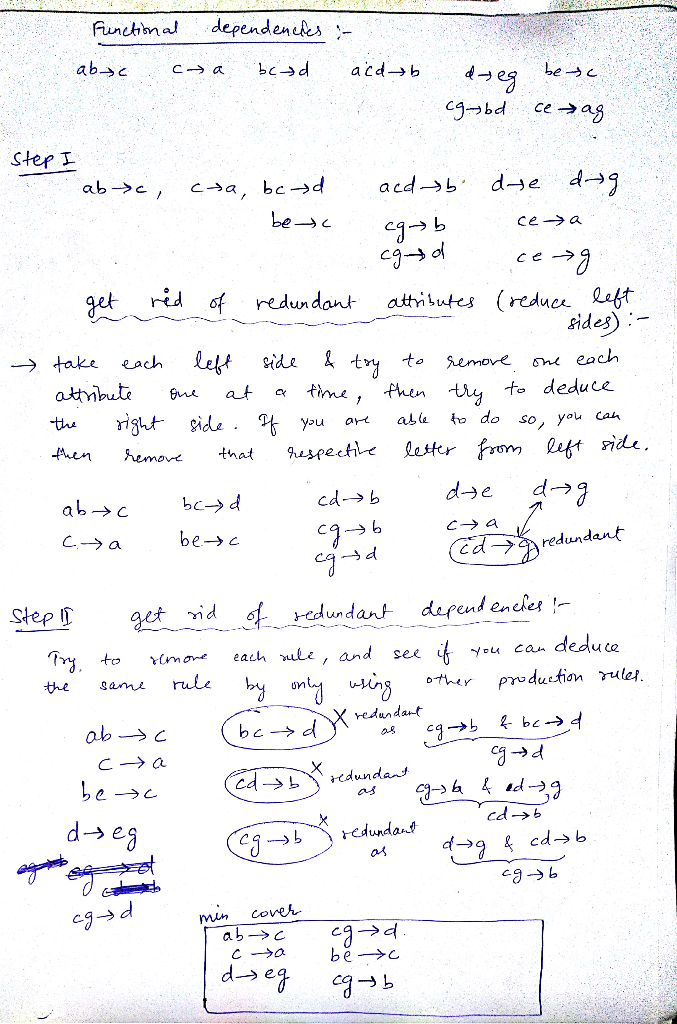 Functional dependencies :-
ab→c c→a bc→d acd→b d→eg be→c
cg→bd ce→ag
Step I
ab→c, c→a, bc→d acd→b d→e d→g
be→c cg→b ce→a
cg→d ce→g
get rid of redundant attributes (reduce left
sides) :-
→ take each left side & try to remove one each
attribute one at a time, then try to deduce
the right side. If you are able to do so, you can
then remove that respective letter from left side.
ab→c bc→d cd→b d→e d→g
c→a be→c cg→b c→a
cg→d cd→g redundant
Step II get rid of redundant dependencies :-
Try to remove each rule, and see if you can deduce
the same rule by only using other production rules.
ab→c bc→d X redundant as cg→b & bc→d
c→a cg→d
be→c cd→b X redundant as cg→b & cd→g
cd→b
d→eg cg→b X redundant as d→g & cd→b
cg→b
cg→d
min cover
ab→c cg→d.
c→a be→c
d→eg cg→b